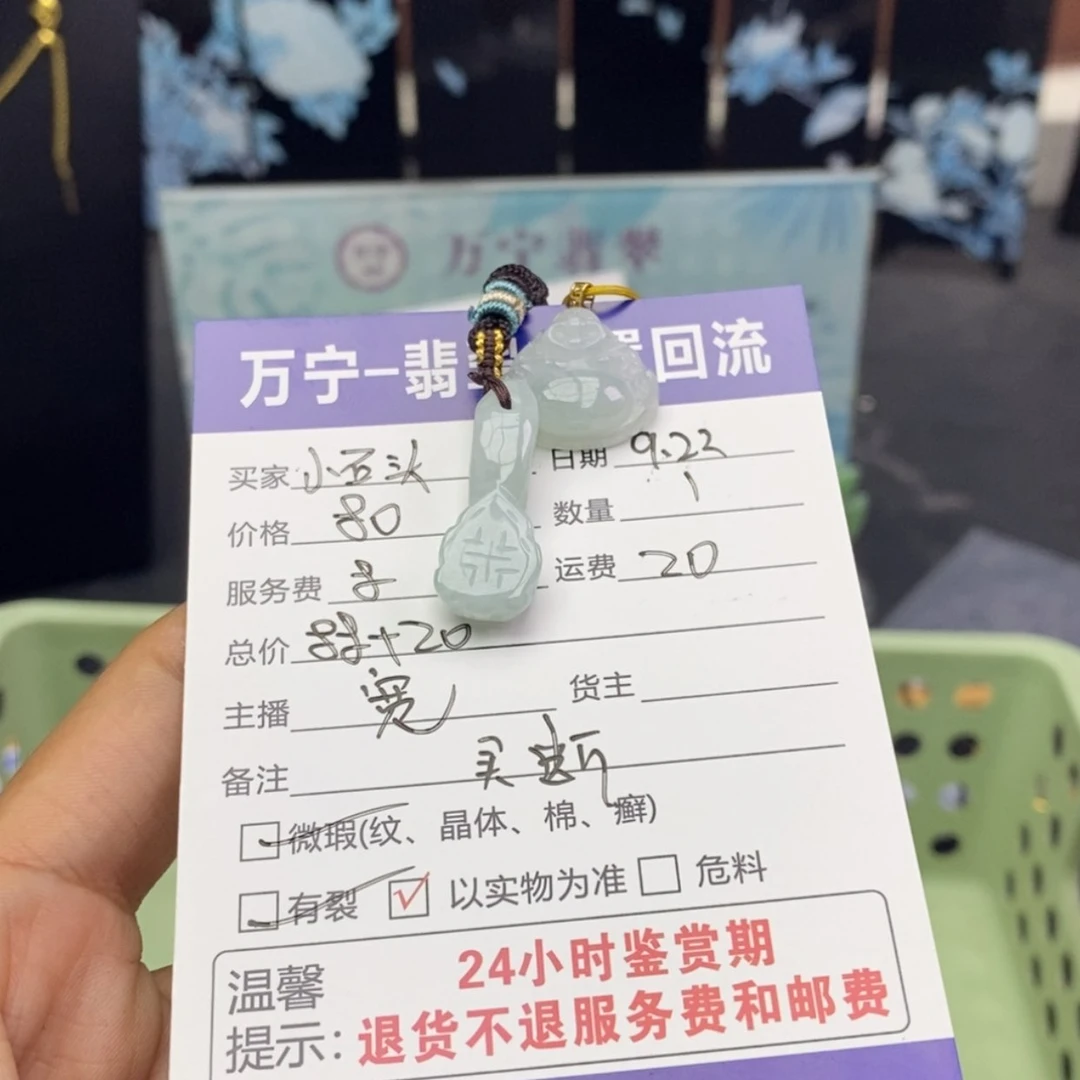 万宁翡翠
万宁-翡 回流
买家 小石头 日期 9.22
价格 80 数量 1
服务费 8 运费 20
总价 88+20
主播 宽 货主
备注 买断
微瑕(纹、晶体、棉、癣)
有裂 以实物为准 危料
温馨提示: 24小时鉴赏期
退货不退服务费和邮费